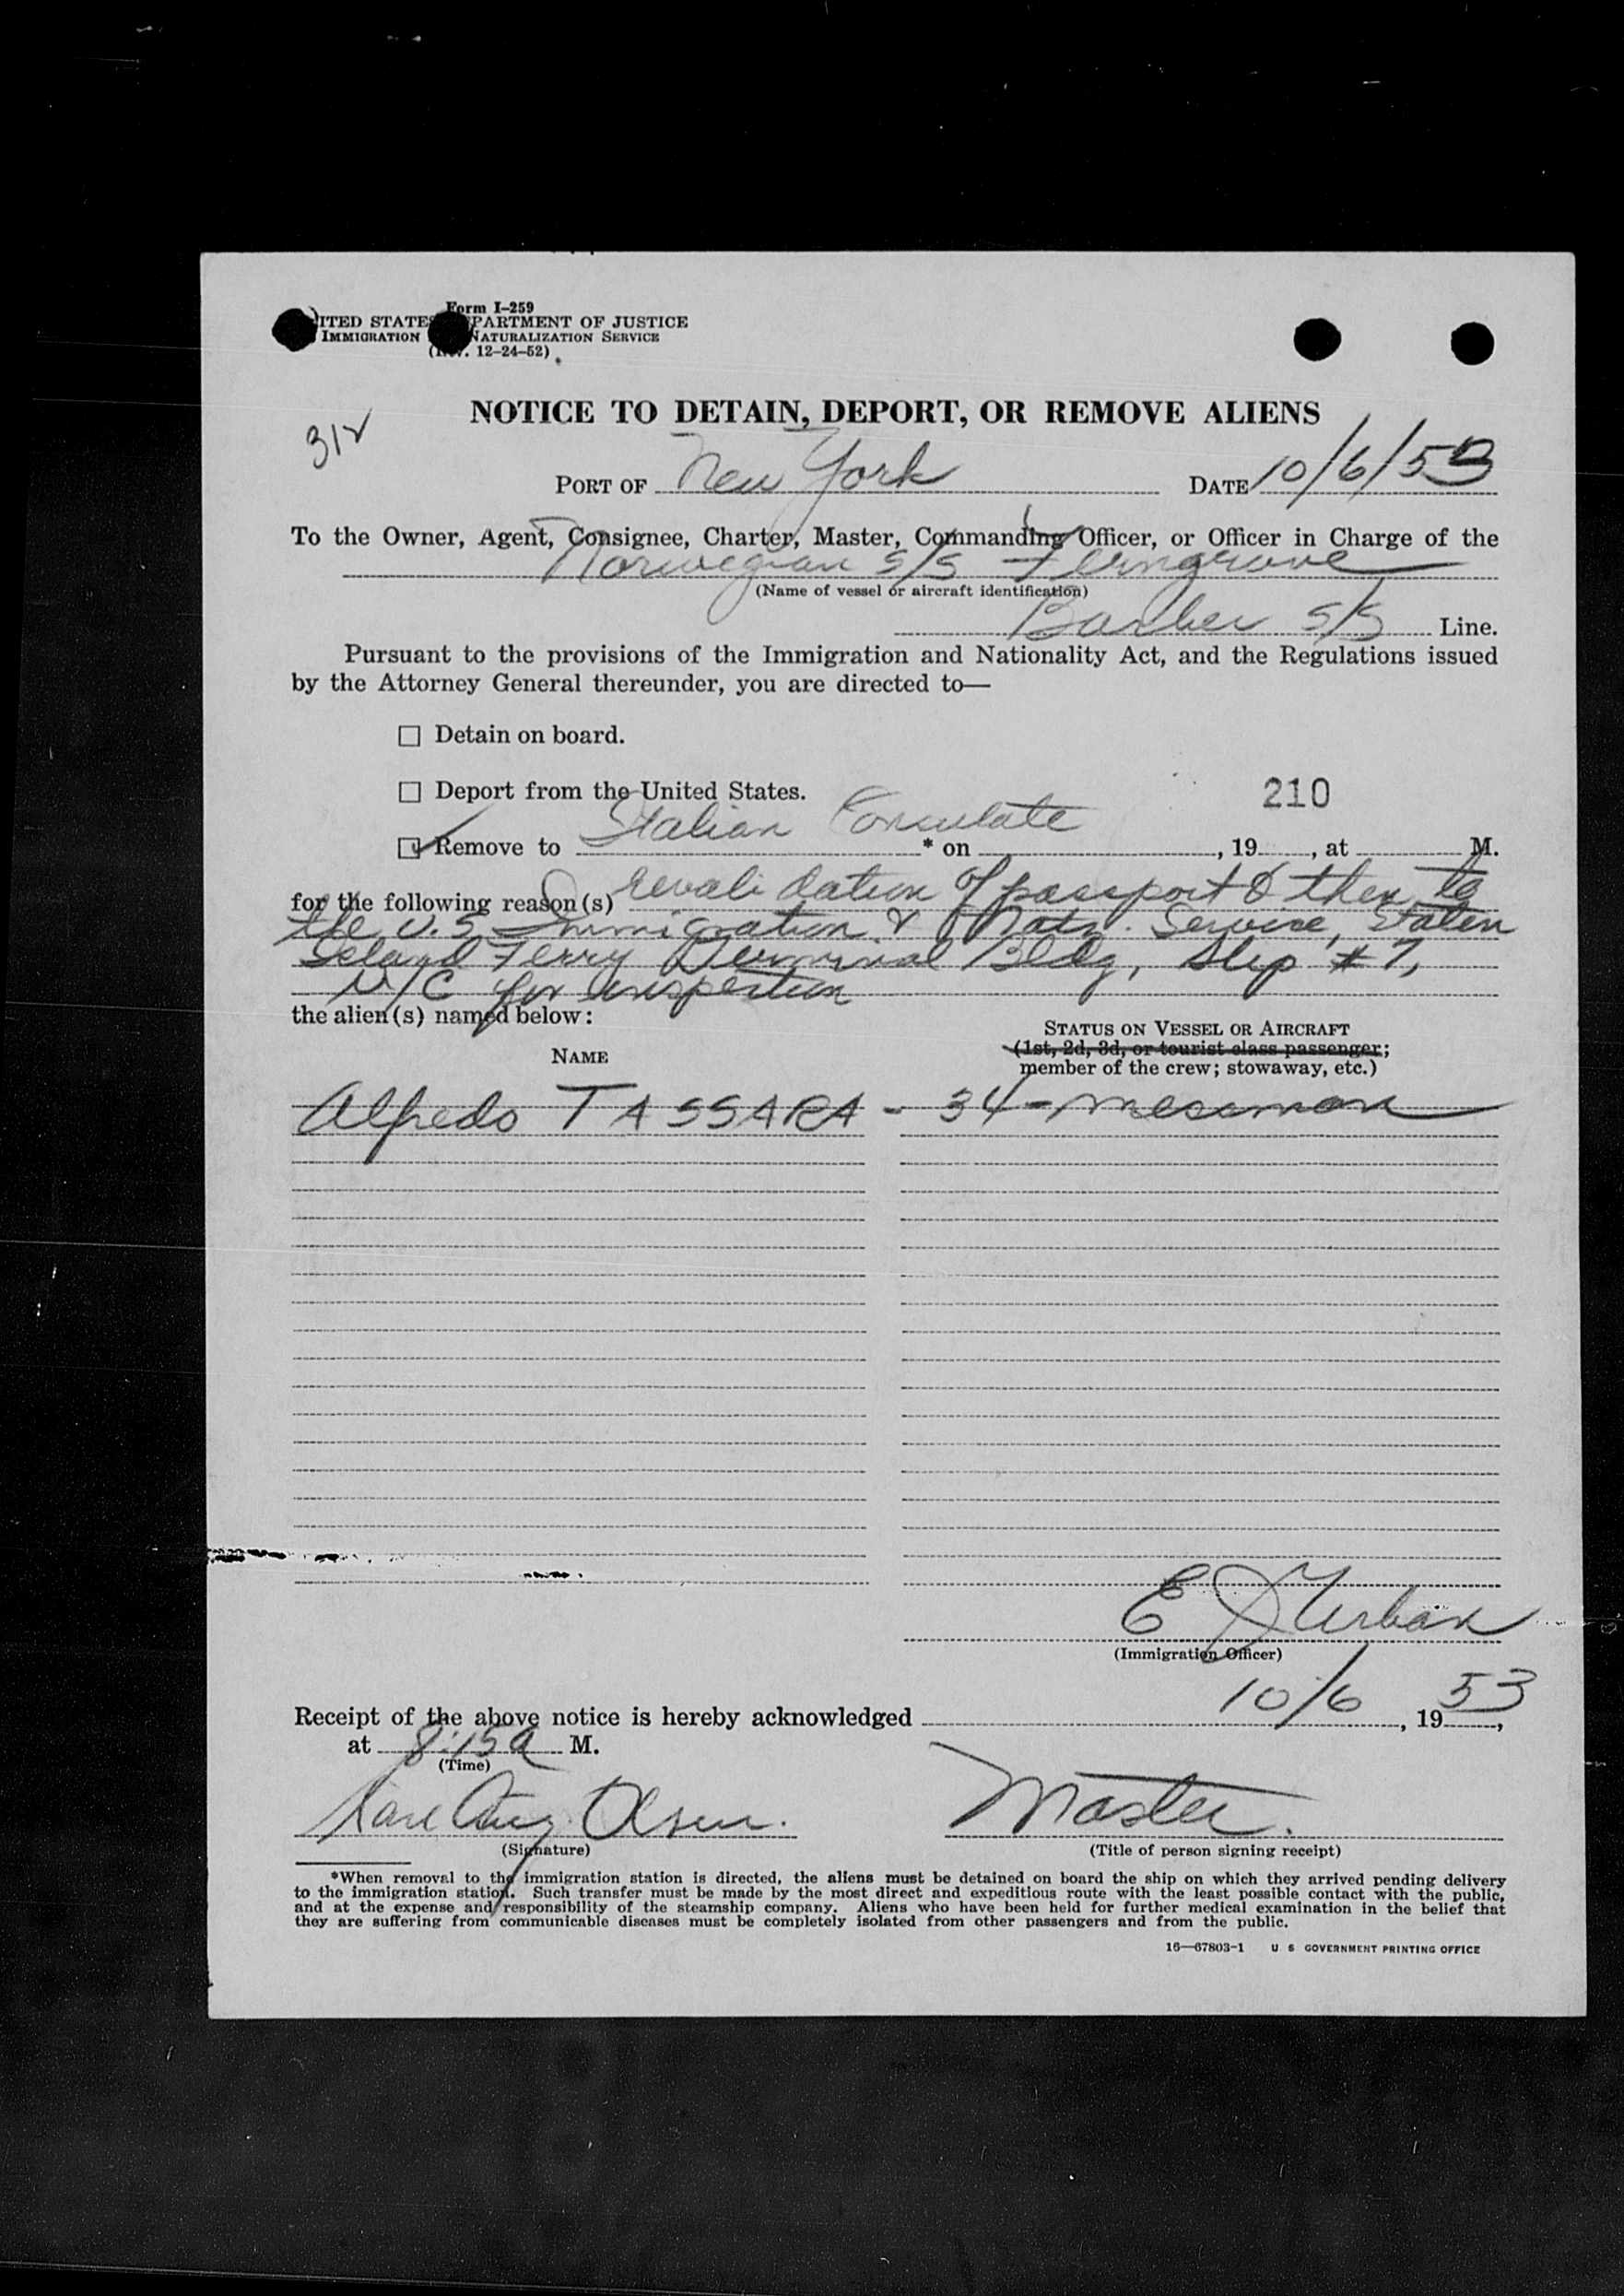 Form I-259
ITED STATES PARTMENT OF JUSTICE
IMMIGRATION NATURALIZATION SERVICE
. 12-24-52)
312
NOTICE TO DETAIN, DEPORT, OR REMOVE ALIENS
PORT OF New York DATE 10/6/53
To the Owner, Agent, Consignee, Charter, Master, Commanding Officer, or Officer in Charge of the
Norwegian S/S Ferngrove
(Name of vessel or aircraft identification)
Barber S/S Line.
Pursuant to the provisions of the Immigration and Nationality Act, and the Regulations issued
by the Attorney General thereunder, you are directed to—
☐ Detain on board.
☐ Deport from the United States. 210
☑ Remove to Italian Consulate * on , 19 , at M.
for the following reason(s) revalidation of passport & then to
the U.S. Immigration & Natz. Service, Staten
Island Ferry Terminal Bldg, Slip #7,
for inspection
the alien(s) named below:
STATUS ON VESSEL OR AIRCRAFT
NAME (1st, 2d, 3d, or tourist class passenger;
member of the crew; stowaway, etc.)
Alfredo TASSARA - 34 - messman
E J Urban
(Immigration Officer)
Receipt of the above notice is hereby acknowledged 10/6, 1953,
at 8:15a M.
(Time)
Olsen. Master.
(Signature) (Title of person signing receipt)
*When removal to the immigration station is directed, the aliens must be detained on board the ship on which they arrived pending delivery
to the immigration station. Such transfer must be made by the most direct and expeditious route with the least possible contact with the public,
and at the expense and responsibility of the steamship company. Aliens who have been held for further medical examination in the belief that
they are suffering from communicable diseases must be completely isolated from other passengers and from the public.
16—67803-1 U S GOVERNMENT PRINTING OFFICE